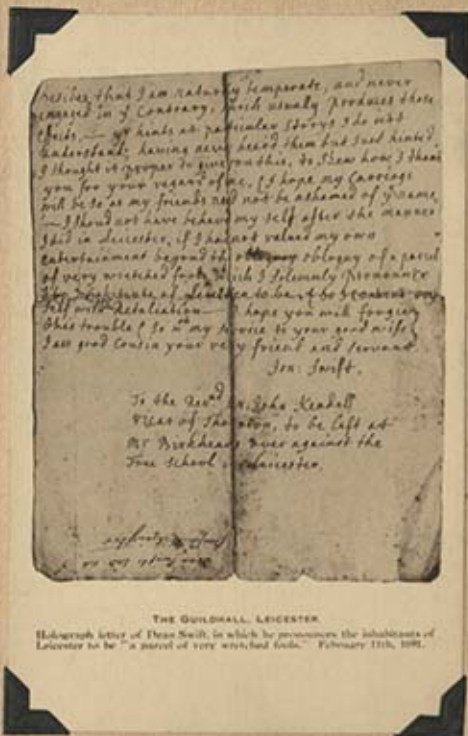 besides that I am naturaly temperate, and never
engaged in yᵉ Contrary, which usually produces those
effects. — yʳ hints at particular storys I do not
understand; having never heard them but just so hinted.
I thought it proper to give you this, to shew how I thank
you for your regard of me, & I hope my Carriage
will be so as my friends need not be ashamed of yᵉ name,
— I should not have behaved my self after the manner
I did in Leicester, if I had not valued my own
entertainment beyond the obloquy of a parcel
of very wretched fools, which I solemnly pronounce
the inhabitants of Leicester to be, & so I content my
self with Retaliation — I hope you will forgive
this trouble & so wᵗʰ my service to your good wife
I am good Cousin your very friend and servant
Jon: Swift.
To the Revᵈ Mr. John Kendall
Vicar of Thornton, to be left at
Mr Birkheads over against the
Free School in Leicester.
THE GUILDHALL, LEICESTER.
Holograph letter of Dean Swift, in which he pronounces the inhabitants of
Leicester to be "a parcel of very wretched fools." February 11th, 1691.